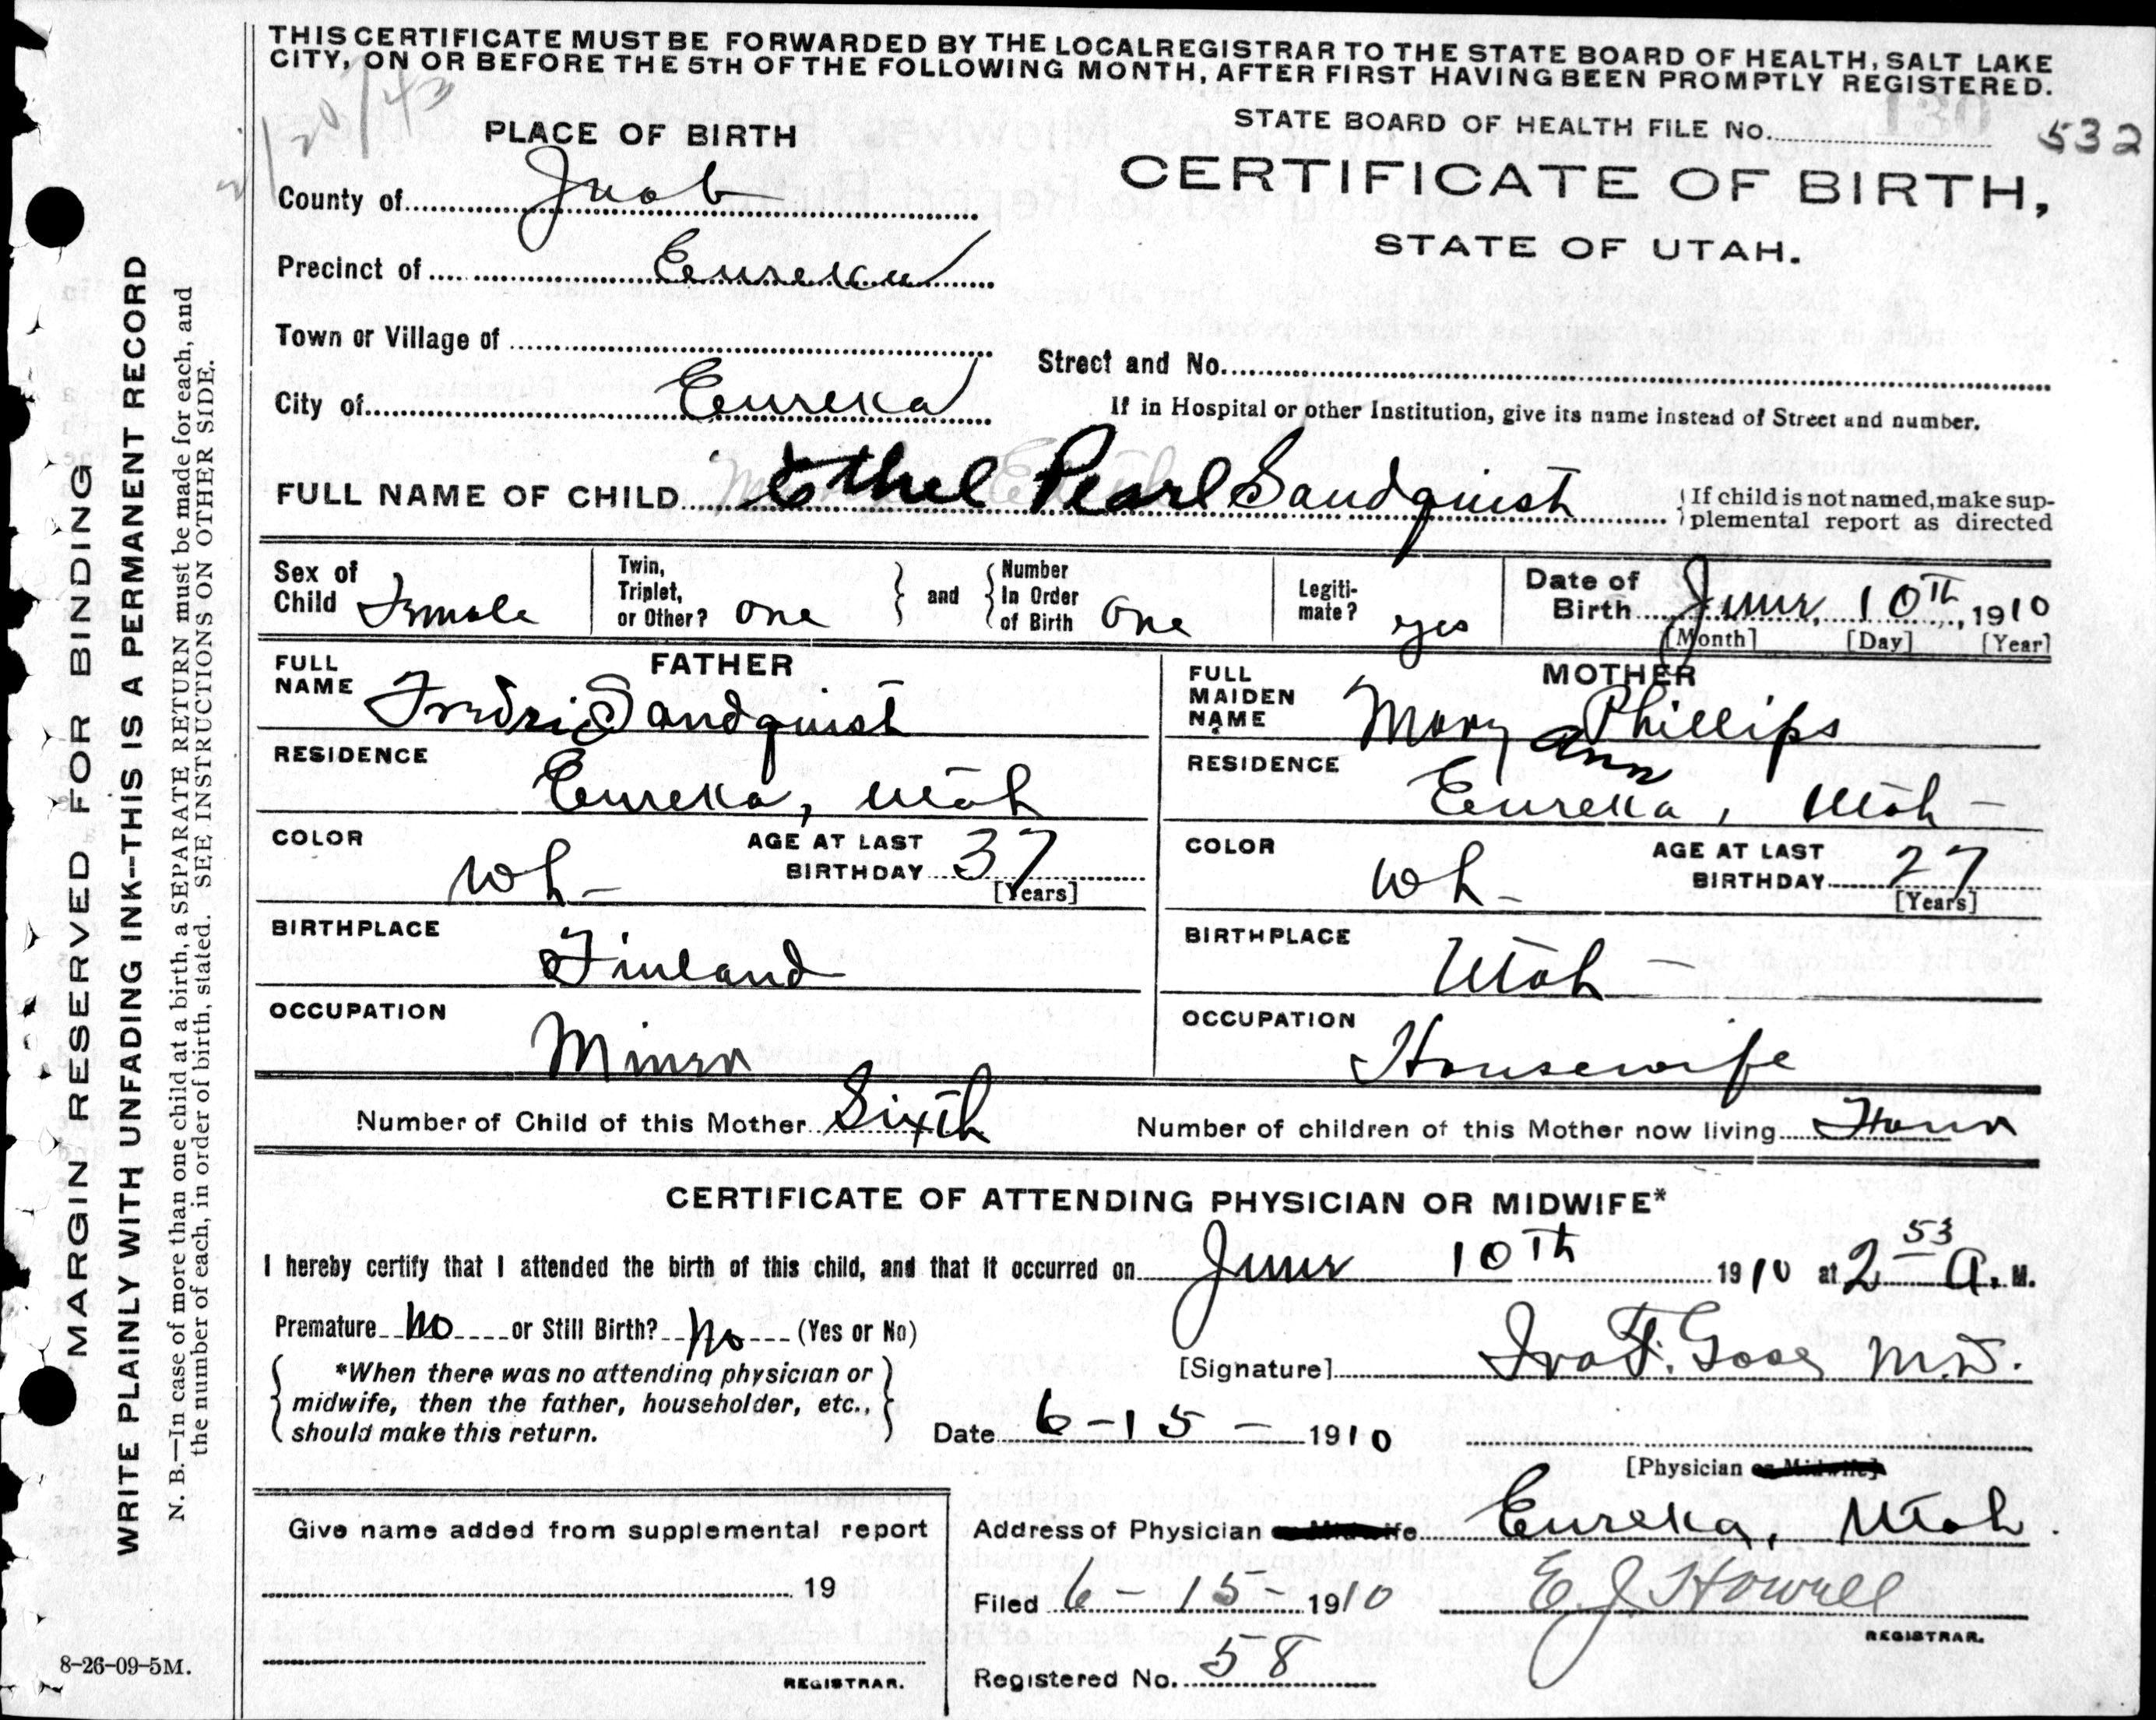 THIS CERTIFICATE MUST BE FORWARDED BY THE LOCAL REGISTRAR TO THE STATE BOARD OF HEALTH, SALT LAKE
CITY, ON OR BEFORE THE 5TH OF THE FOLLOWING MONTH, AFTER FIRST HAVING BEEN PROMPTLY REGISTERED.
STATE BOARD OF HEALTH FILE No. 130 532
PLACE OF BIRTH
CERTIFICATE OF BIRTH,
STATE OF UTAH.
County of Juab
Precinct of Eureka
Town or Village of
Street and No.
City of Eureka
If in Hospital or other Institution, give its name instead of Street and number.
FULL NAME OF CHILD Ethel Pearl Sandquist
If child is not named, make sup-
plemental report as directed
Sex of Child Female
Twin, Triplet, or Other? one
and
Number In Order of Birth One
Legiti-mate? yes
Date of Birth June, 10th, 1910
[Month] [Day] [Year]
FATHER
FULL NAME Fredric Sandquist
RESIDENCE
Eureka, Utah
COLOR wh-
AGE AT LAST BIRTHDAY 37
[Years]
BIRTHPLACE
Finland
OCCUPATION
Miner
MOTHER
FULL MAIDEN NAME Mary Ann Phillips
RESIDENCE
Eureka, Utah -
COLOR wh-
AGE AT LAST BIRTHDAY 27
[Years]
BIRTHPLACE
Utah -
OCCUPATION
Housewife
Number of Child of this Mother Sixth
Number of children of this Mother now living Four
CERTIFICATE OF ATTENDING PHYSICIAN OR MIDWIFE*
I hereby certify that I attended the birth of this child, and that it occurred on June 10th 1910 at 2 53 A. M.
Premature No or Still Birth? No (Yes or No)
*When there was no attending physician or
midwife, then the father, householder, etc.,
should make this return.
[Signature] F. M.D.
Date 6-15-1910
[Physician or Midwife]
Address of Physician or Midwife Eureka, Utah.
Give name added from supplemental report
19
REGISTRAR.
Filed 6-15-1910
E. J. Howell
REGISTRAR.
Registered No. 58
8-26-09-5M.
MARGIN RESERVED FOR BINDING
WRITE PLAINLY WITH UNFADING INK--THIS IS A PERMANENT RECORD
N. B.—In case of more than one child at a birth, a SEPARATE RETURN must be made for each, and
the number of each, in order of birth, stated. SEE INSTRUCTIONS ON OTHER SIDE.